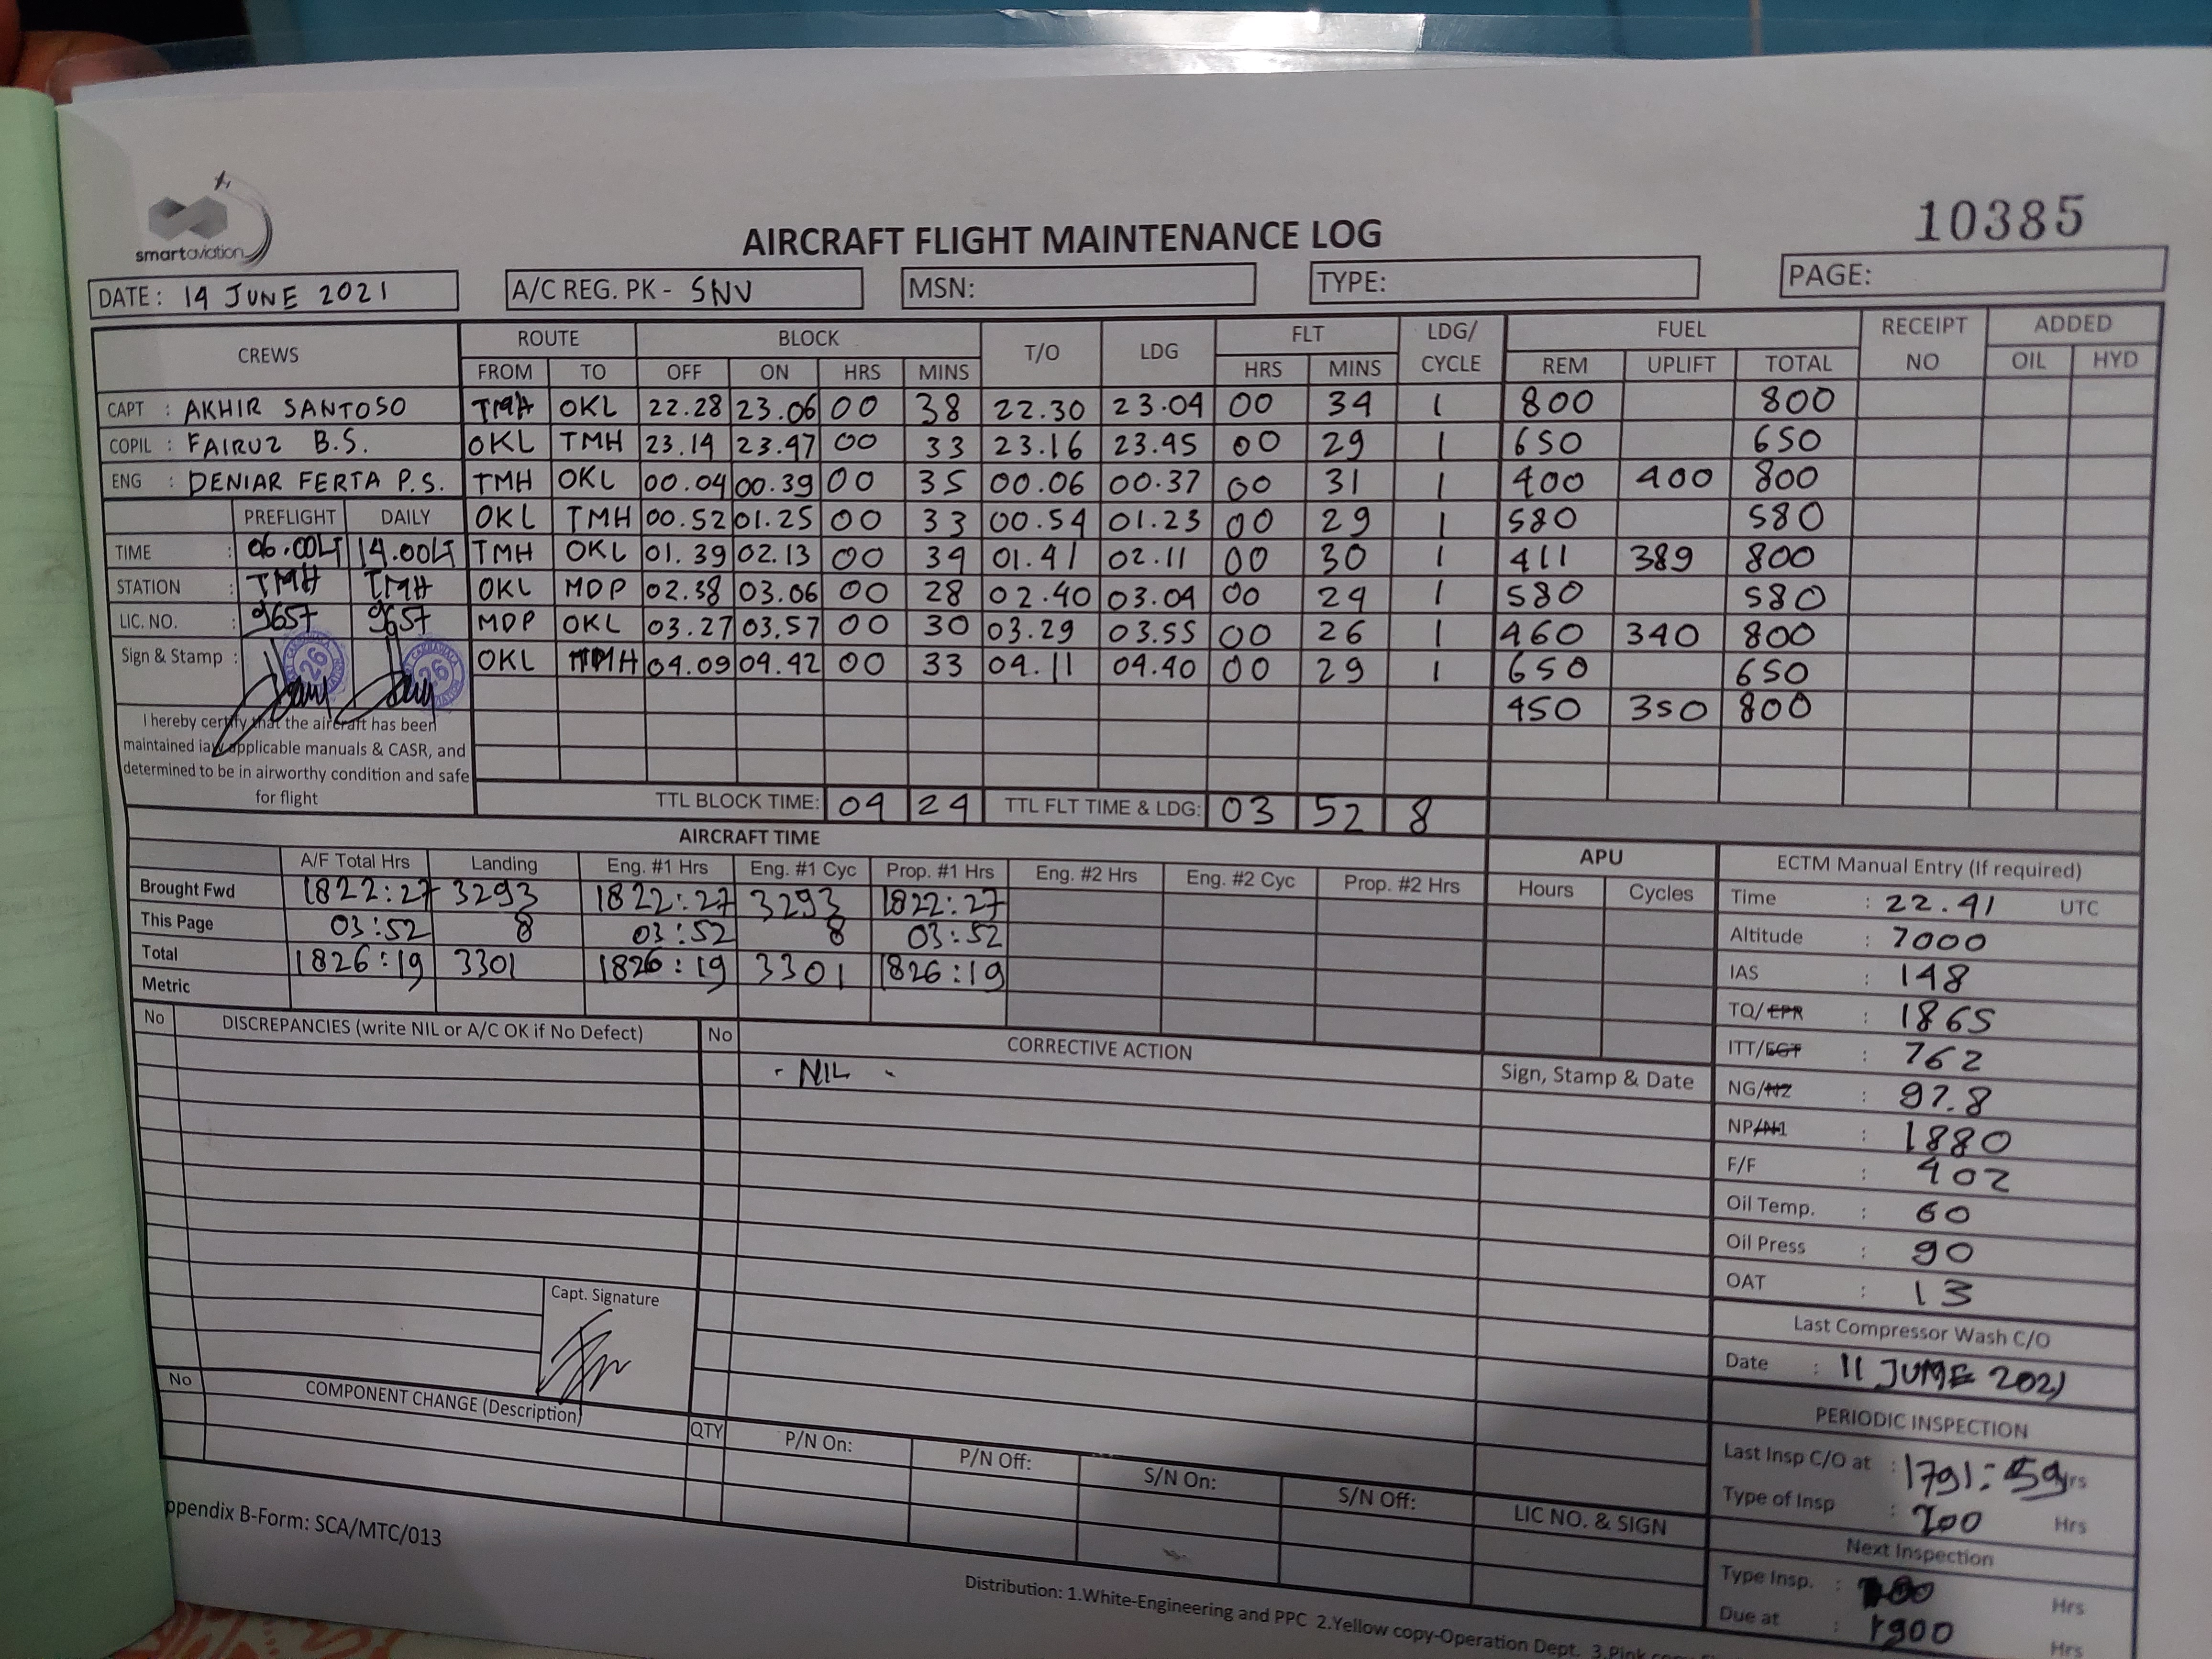 smartaviation
10385
AIRCRAFT FLIGHT MAINTENANCE LOG
DATE: 14 JUNE 2021 A/C REG. PK - SNV MSN: TYPE: PAGE:
CREWS ROUTE BLOCK T/O LDG FLT LDG/ CYCLE FUEL RECEIPT NO ADDED
FROM TO OFF ON HRS MINS HRS MINS REM UPLIFT TOTAL OIL HYD
CAPT : AKHIR SANTOSO TMH OKL 22.28 23.06 00 38 22.30 23.04 00 34 1 800 800
COPIL : FAIRUZ B.S. OKL TMH 23.14 23.47 00 33 23.16 23.45 00 29 1 650 650
ENG : DENIAR FERTA P.S. TMH OKL 00.04 00.39 00 35 00.06 00.37 00 31 1 400 400 800
PREFLIGHT DAILY OKL TMH 00.52 01.25 00 33 00.54 01.23 00 29 1 580 580
TIME : 06.00LT 14.00LT TMH OKL 01.39 02.13 00 34 01.41 02.11 00 30 1 411 389 800
STATION : TMH TMH OKL MDP 02.38 03.06 00 28 02.40 03.04 00 24 1 580 580
LIC. NO. : 9657 9657 MDP OKL 03.27 03.57 00 30 03.29 03.55 00 26 1 460 340 800
Sign & Stamp : 26 26 OKL TMH 04.09 04.42 00 33 04.11 04.40 00 29 1 650 650
450 350 800
I hereby certify that the aircraft has been
maintained iaw applicable manuals & CASR, and
determined to be in airworthy condition and safe
for flight
TTL BLOCK TIME: 04 24 TTL FLT TIME & LDG: 03 52 8
AIRCRAFT TIME APU ECTM Manual Entry (If required)
A/F Total Hrs Landing Eng. #1 Hrs Eng. #1 Cyc Prop. #1 Hrs Eng. #2 Hrs Eng. #2 Cyc Prop. #2 Hrs Hours Cycles
Brought Fwd 1822:27 3293 1822:27 3293 1822:27
This Page 03:52 8 03:52 8 03:52
Total 1826:19 3301 1826:19 3301 1826:19
Metric
Time : 22.41 UTC
Altitude : 7000
IAS : 148
TQ/EPR : 1865
ITT/EGT : 762
NG/N2 : 97.8
NP/N1 : 1880
F/F : 402
Oil Temp. : 60
Oil Press : 90
OAT : 13
Last Compressor Wash C/O
Date : 11 JUNE 2021
PERIODIC INSPECTION
Last Insp C/O at : 1791:59 Hrs
Type of Insp : 200 Hrs
Next Inspection
Type Insp. : Hrs
Due at : 1900 Hrs
No DISCREPANCIES (write NIL or A/C OK if No Defect) No CORRECTIVE ACTION Sign, Stamp & Date
- NIL -
Capt. Signature
No COMPONENT CHANGE (Description) QTY P/N On: P/N Off: S/N On: S/N Off: LIC NO. & SIGN
ppendix B-Form: SCA/MTC/013
Distribution: 1.White-Engineering and PPC 2.Yellow copy-Operation Dept. 3.Pink